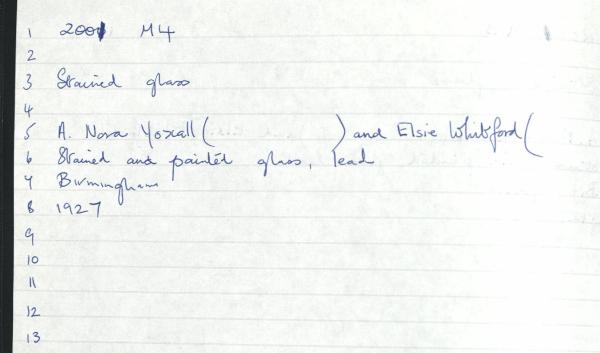 1 2001 M4
2
3 Stained glass
4
5 A. Nora Yoxall ( ) and Elsie Whitford (
6 Stained and painted glass, lead
7 Birmingham
8 1927
9
10
11
12
13